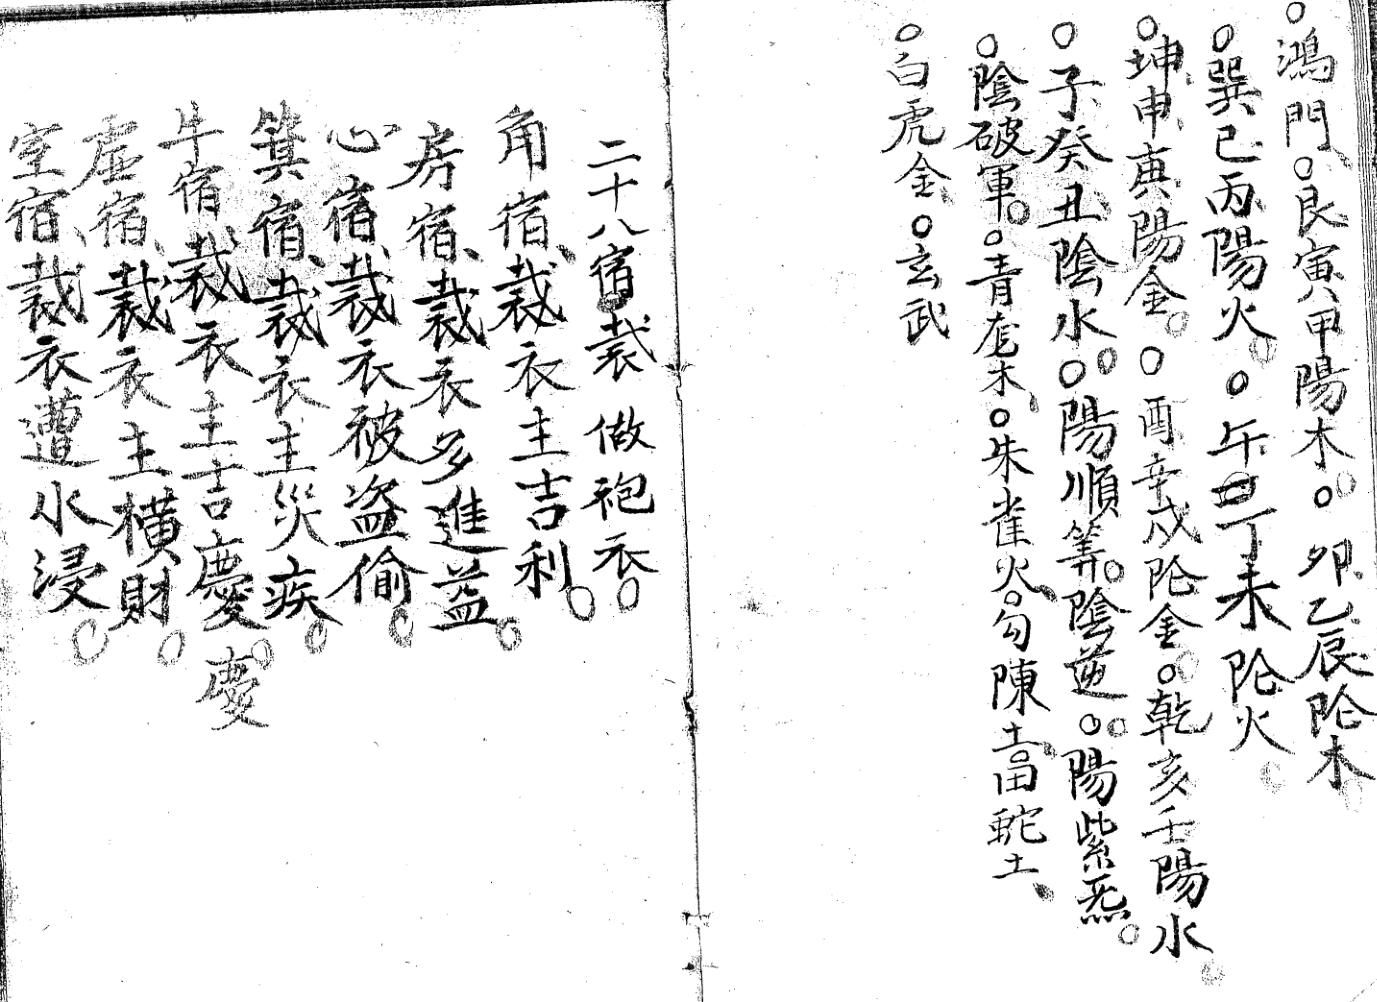 ○鴻門○艮寅甲陽木○卯乙辰阾木
○巽巳丙陽火○午丁未阾火
○坤申庚陽金○酉辛戌阾金○乾亥壬陽水
○子癸丑陰水○陽順筭陰逆○陽紫炁
○陰破軍○青龙木○朱雀火○勾陳土畨蛇土
○白虎金○玄武
二十八宿裁做袍衣
角宿裁衣主吉利
房宿裁衣多進益
心宿裁衣被盗偷
箕宿裁衣主災疾
牛宿裁衣主吉慶慶
虛宿裁衣主橫財
室宿裁衣遭水浸